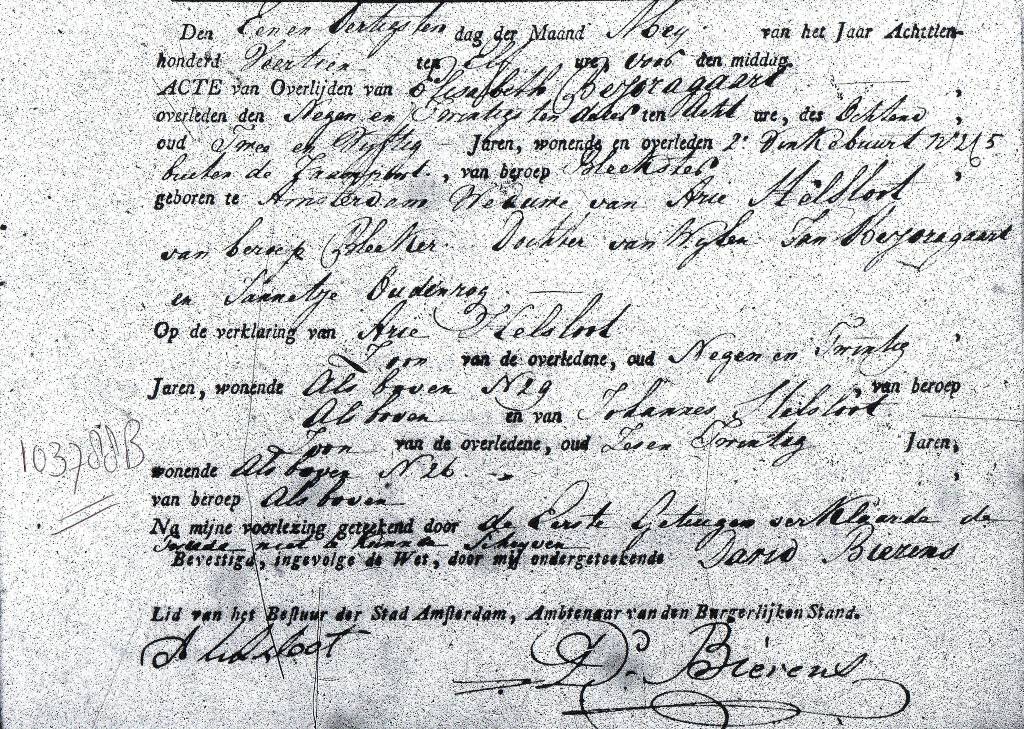 Den Een en dertigsten dag der Maand Mey van het Jaar Achttien-
honderd Veertien ten Elf ure, voor den middag.
ACTE van Overlijden van Elisabeth Beyoragaart
overleden den Negen en Twintigsten deeser ten Acht ure, des Ochtend,
oud Twee en Vyftig Jaren, wonende en overleden 2e Vinkebuurt No 215
buiten de , van beroep Bleekster,
geboren te Amsterdam Weduwe van Arie Helsloot
van beroep Bleeker. Dochter van Wylen Jan Beyoragaart
en Jannetje Oudenrog.
Op de verklaring van Arie Helsloot,
Zoon van de overledene, oud Negen en Twintig
Jaren, wonende Als boven N 29, van beroep
Als boven en van Johannes Helsloot
Zoon van de overledene, oud Zesen Twintag Jaren,
wonende Als boven N 26,
van beroep Als boven
Na mijne voorlezing geteekend door de Eerste Getuygen verklaarde de
Tweede niet te kunnen Schryven
Bevestigd, ingevolge de Wet, door mij ondergeteekende David Bierens
Lid van het Bestuur der Stad Amsterdam, Ambtenaar van den Burgerlijken Stand.
A Helsloot
Dd. Bierens
103788B